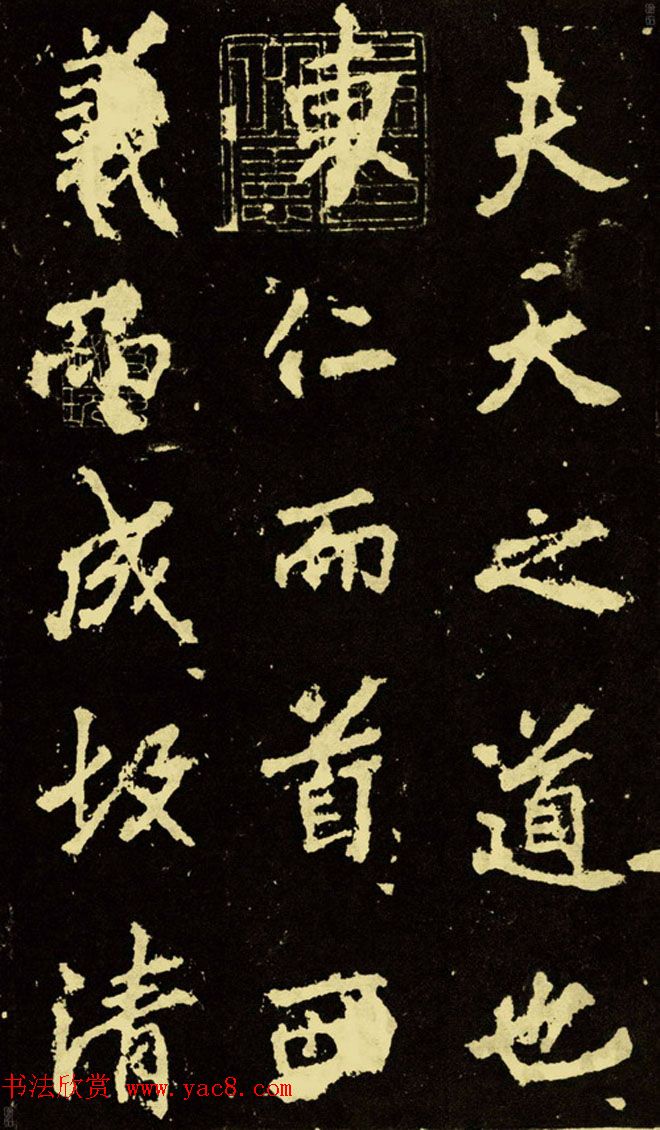 夫天之道也
東仁而首西
義而成故清
书法欣赏 www.yac8.com